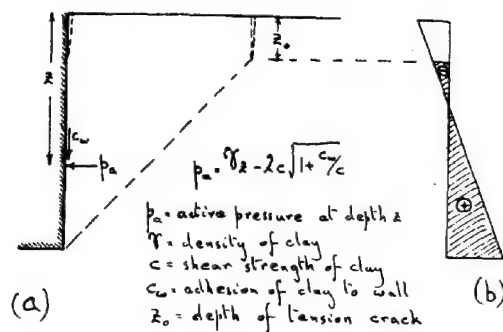 z
z₀
c_w
p_a
p_a = γz - 2c√(1 + c_w/c)
p_a = active pressure at depth z
γ = density of clay
c = shear strength of clay
c_w = adhesion of clay to wall
z₀ = depth of tension crack
⊖
⊕
(a)
(b)